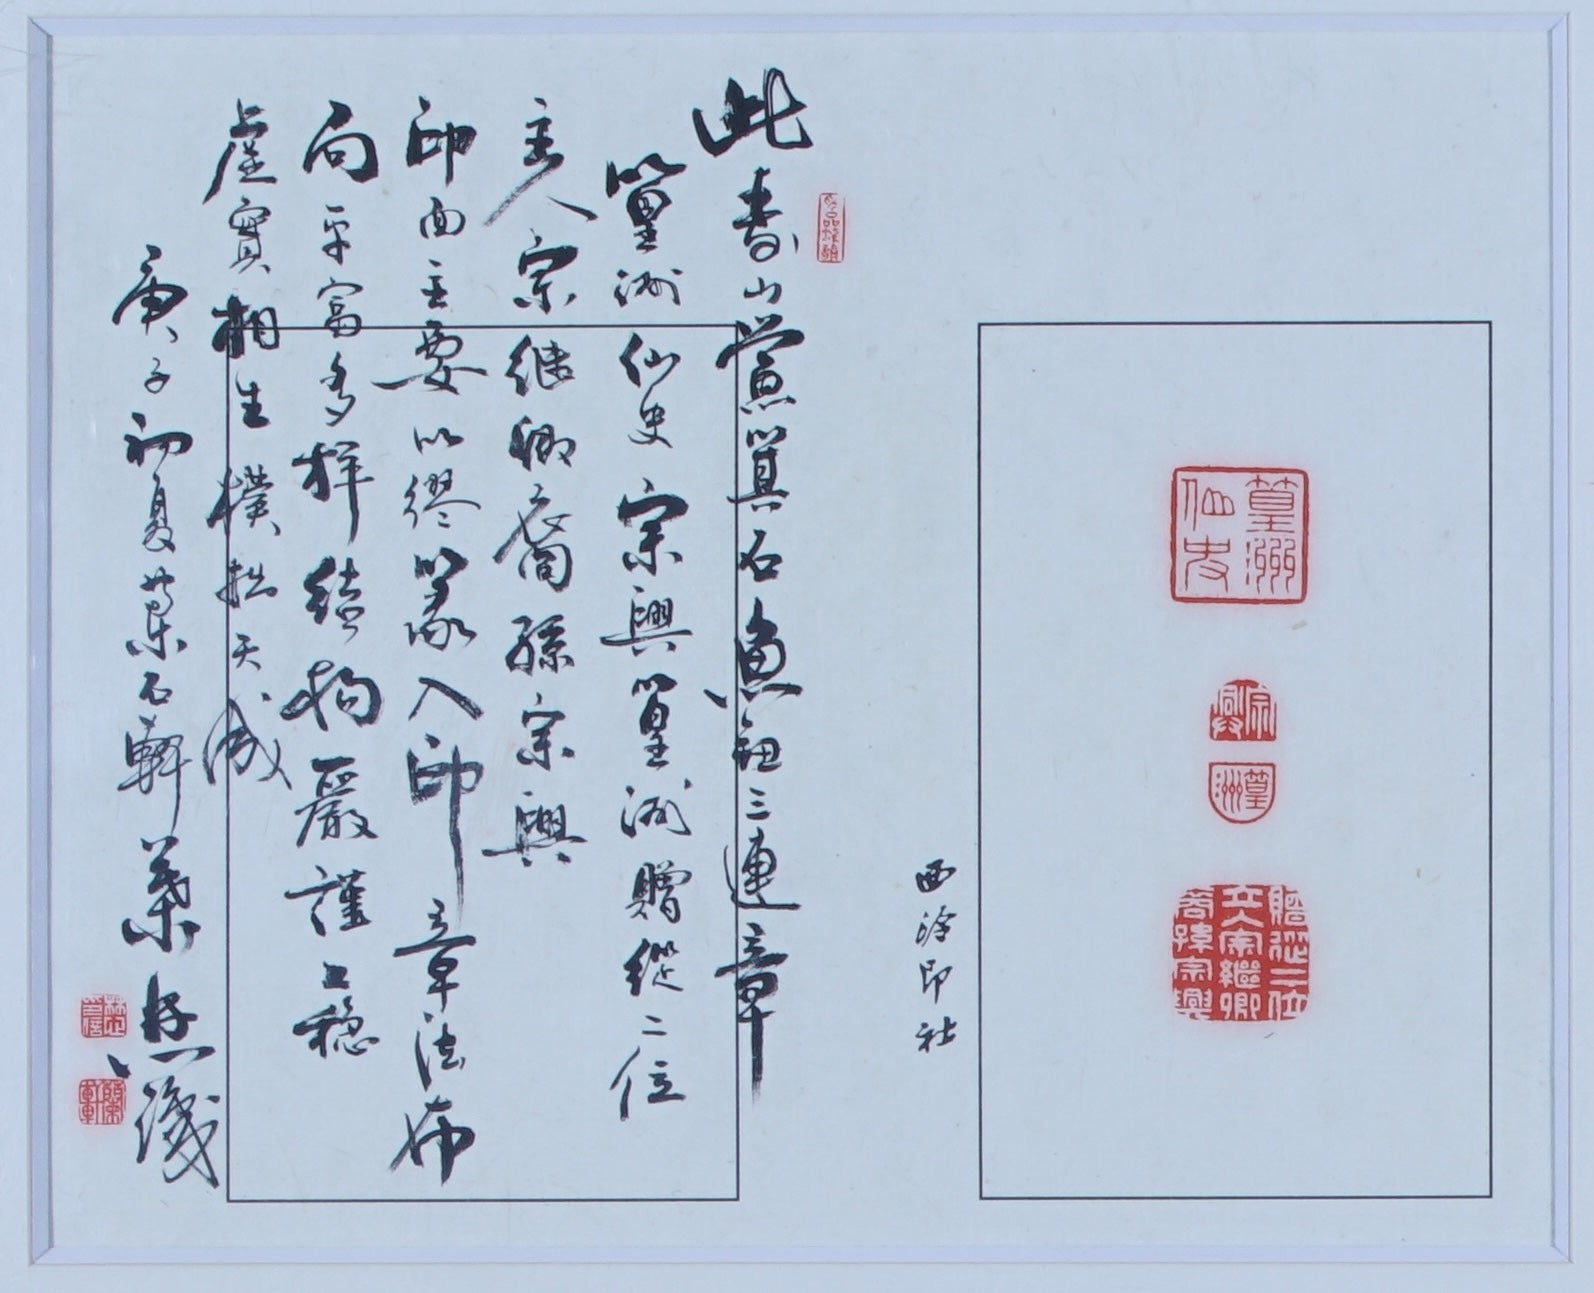 篁洲仙史
宗興
篁洲
贈從二位
主人宗繼卿
裔孫宗興
西泠印社
此壽山鱟箕石魚鈕三連章
篁洲仙史宗興篁洲贈從二位
主人宗继卿裔孫宗興
印面主要以缪篆入印章法布
局丰富多样结构嚴謹工稳
虛實相生樸拙天成
庚子初夏石軒識